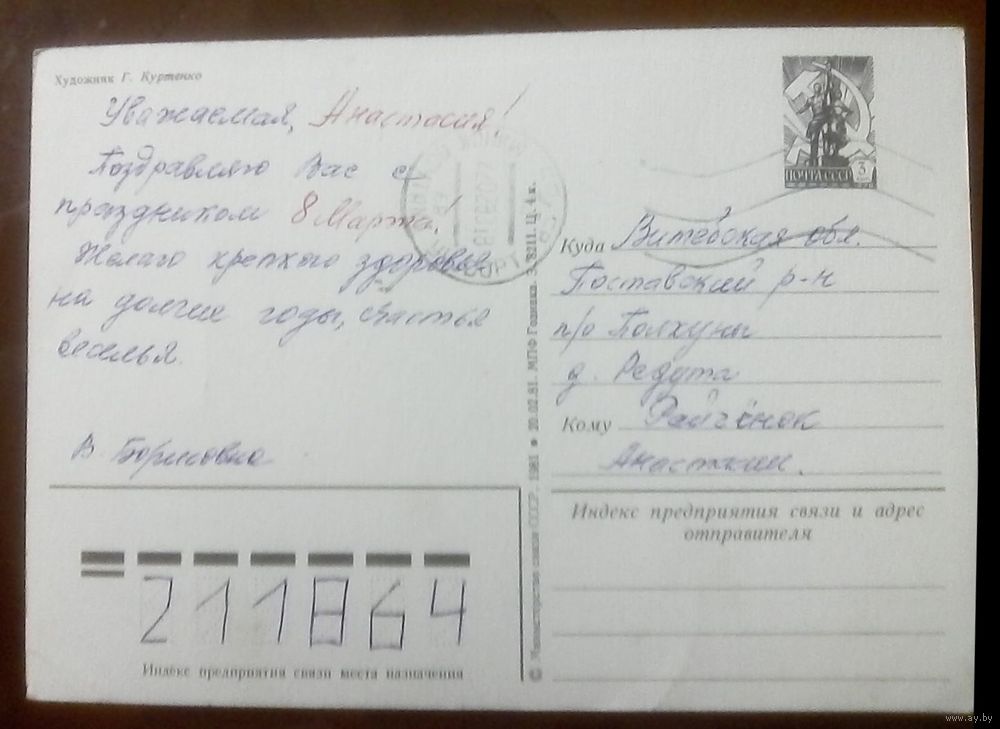 Художник Г. Куртенко
Уважаемая, Анастасия!
Поздравляю Вас с
праздником 8 Марта!
Желаю крепкого здоровья
на долгие годы, счастья
веселья.
В. Борисовна
ПОЧТА СССР 3
Куда Витебская обл.
Поставский р-н
п/о Полхуны
д. Редута
Кому
Анастасии.
Индекс предприятия связи и адрес
отправителя
211864
Индекс предприятия связи места назначения
© Министерство связи СССР, 1981 * 20.02.81. МПФ Гознака. З. 8211. Ц. 4 к.
www.ay.by